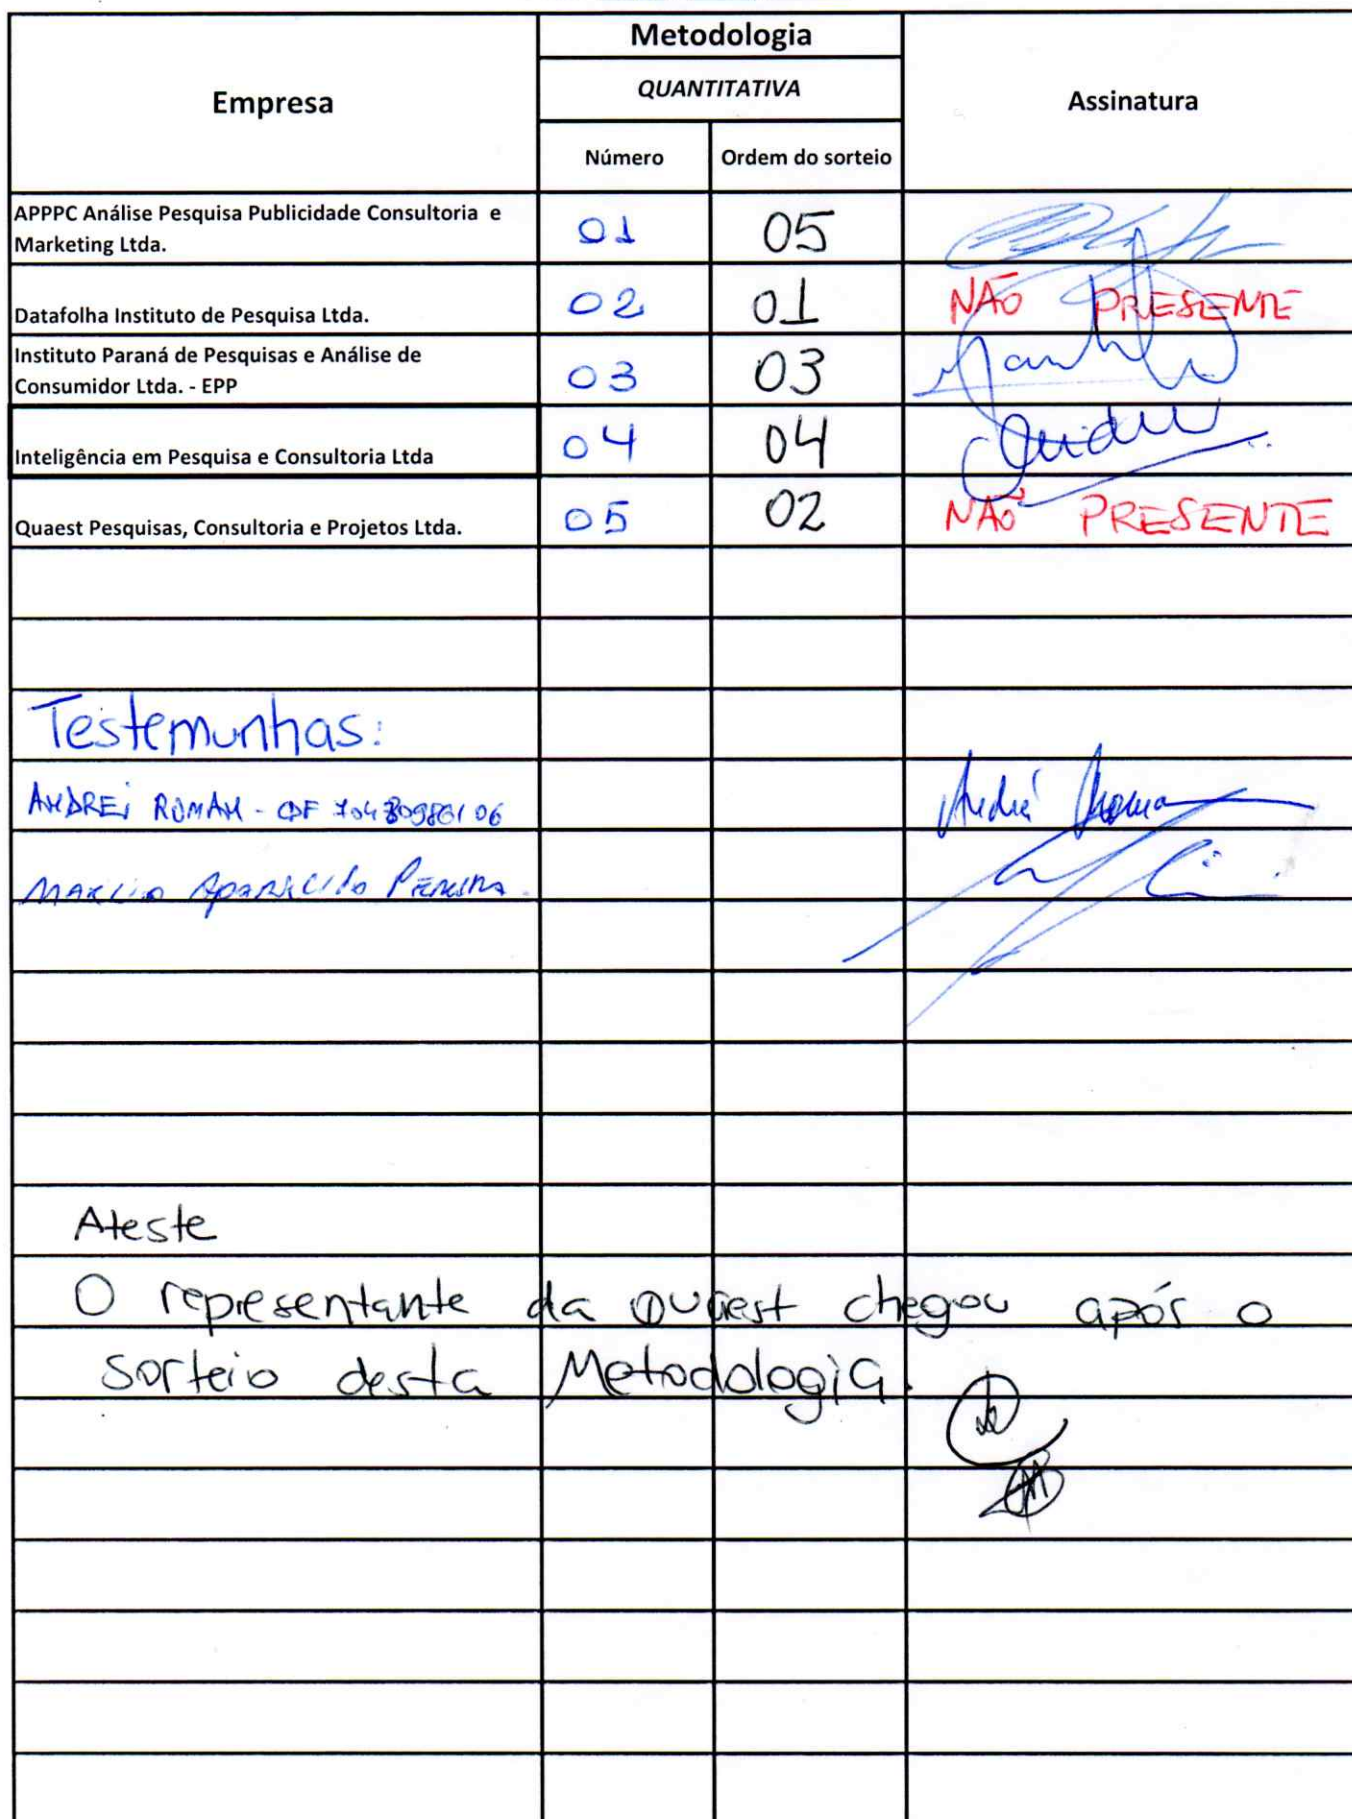 Metodologia
Empresa
QUANTITATIVA
Assinatura
Número
Ordem do sorteio
APPPC Análise Pesquisa Publicidade Consultoria e
Marketing Ltda.
01
05
Datafolha Instituto de Pesquisa Ltda.
02
01
NÃO PRESENTE
Instituto Paraná de Pesquisas e Análise de
Consumidor Ltda. - EPP
03
03
Inteligência em Pesquisa e Consultoria Ltda
04
04
Quaest Pesquisas, Consultoria e Projetos Ltda.
05
02
NÃO PRESENTE
Testemunhas:
ANDREI ROMAN - CPF
Aparecido Pereira
Ateste
O representante da Quaest chegou após o
sorteio desta Metodologia.